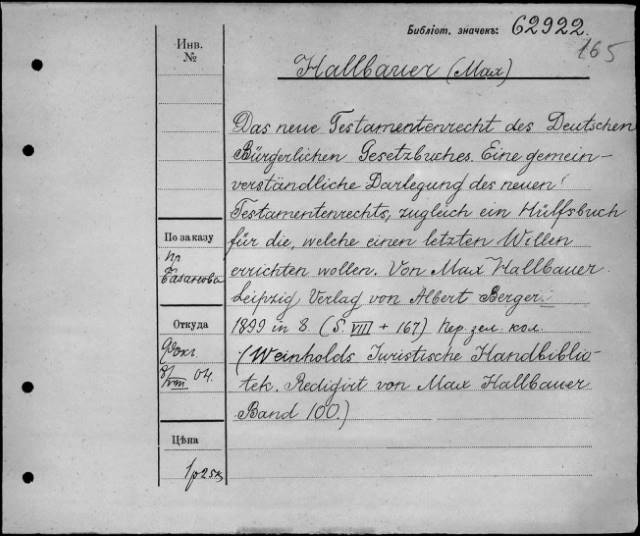 Библіот. значекъ: 62922.
165
Инв.
№
Hallbauer (Max)
Das neue Testamentenrecht des Deutschen
Bürgerlichen Gesetzbuches. Eine gemein-
verständliche Darlegung des neuen
Testamentenrechts, zugleich ein Hülfsbuch
für die, welche einen letzten Willen
errichten wollen. Von Max Hallbauer
Leipzig Verlag von Albert Berger.
1899 in 8. (S. VIII + 167) Кер. зел. кол.
(Weinholds Juristische Handbiblio-
tek. Redigirt von Max Hallbauer
Band 100.)
По заказу
пр
Базанова
Откуда
8/VIII 04.
Цѣна
1р 25к